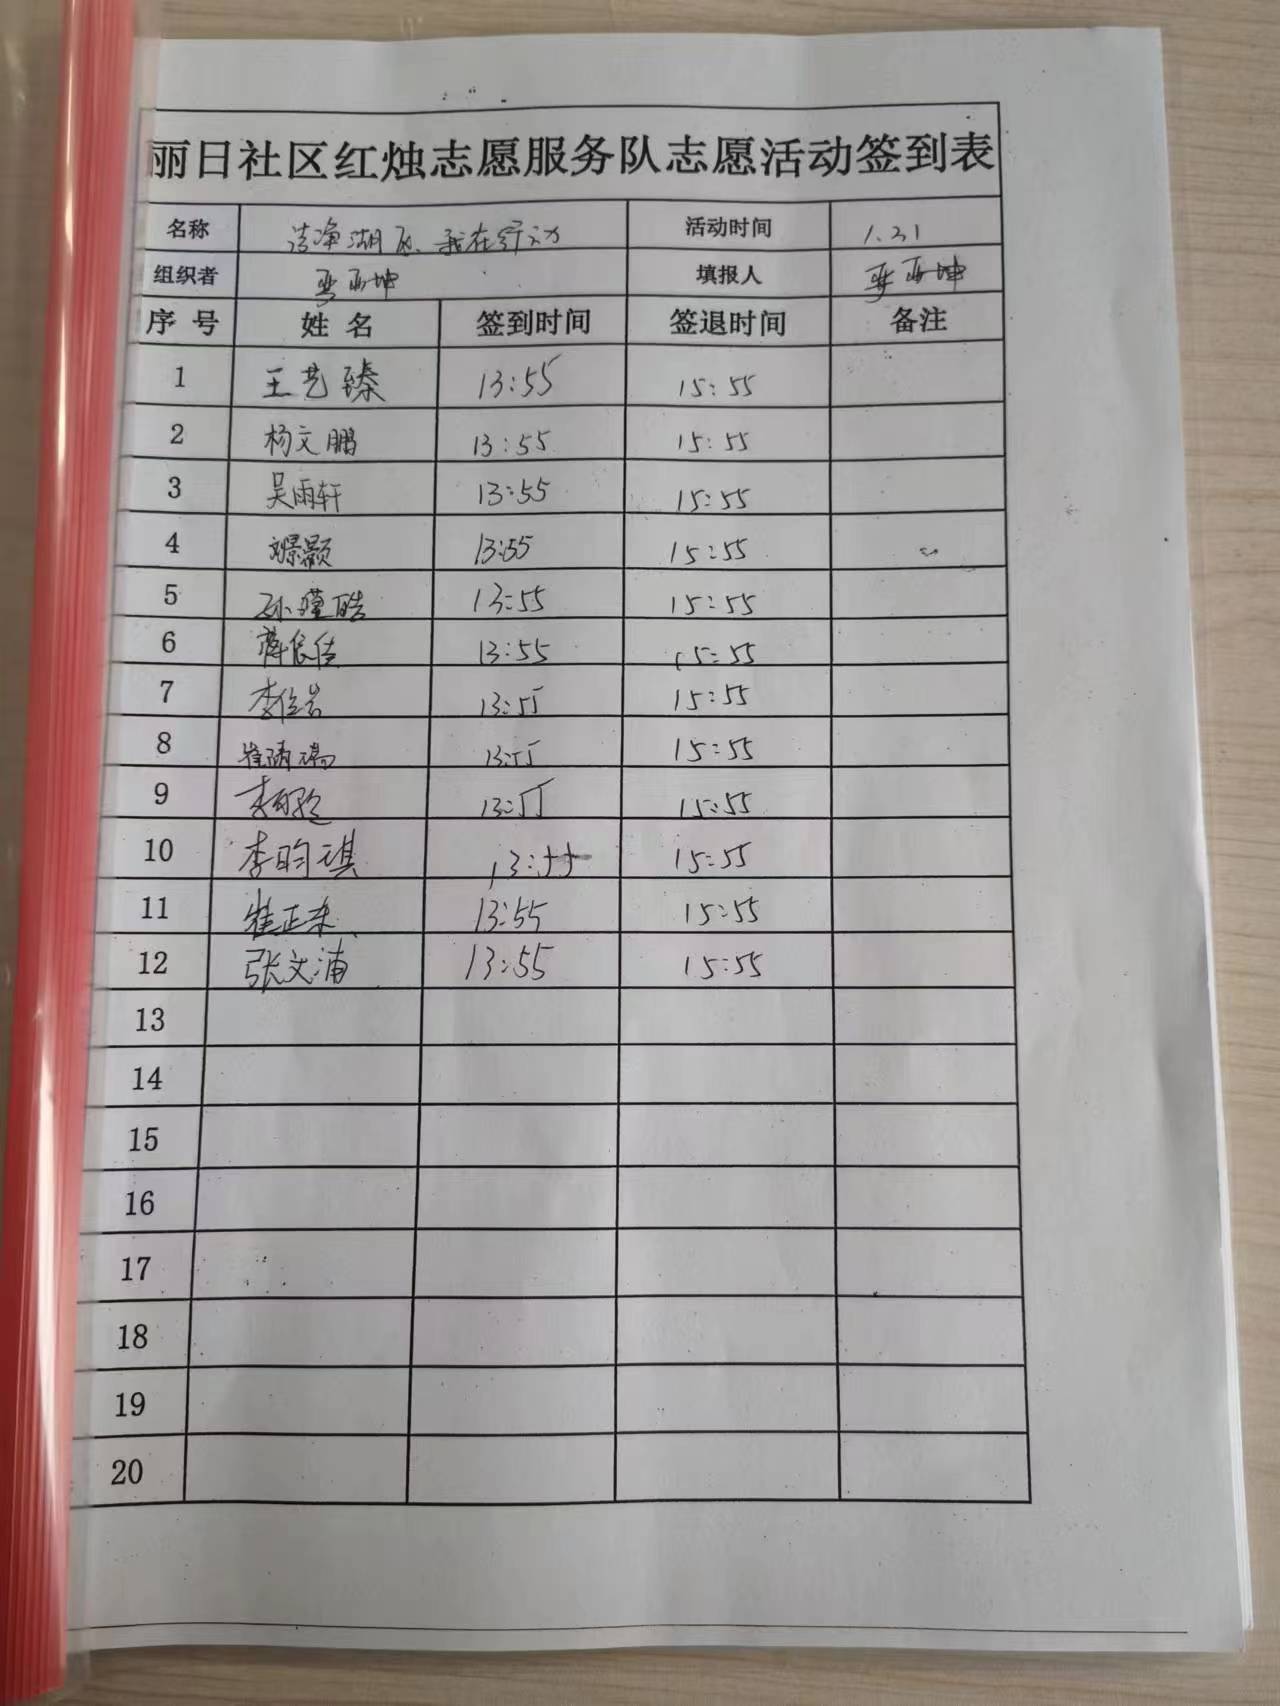 丽日社区红烛志愿服务队志愿活动签到表
名称 洁净湖 我在行动 活动时间 1.31
组织者 亚坤 填报人 亚坤
序号 姓名 签到时间 签退时间 备注
1 王艺臻 13:55 15:55
2 杨文鹏 13:55 15:55
3 吴雨轩 13:55 15:55
4 13:55 15:55
5 孙瑾皓 13:55 15:55
6 13:55 15:55
7 13:55 15:55
8 13:55 15:55
9 13:55 15:55
10 李昀琪 13:55 15:55
11 崔正 13:55 15:55
12 张文浦 13:55 15:55
13
14
15
16
17
18
19
20